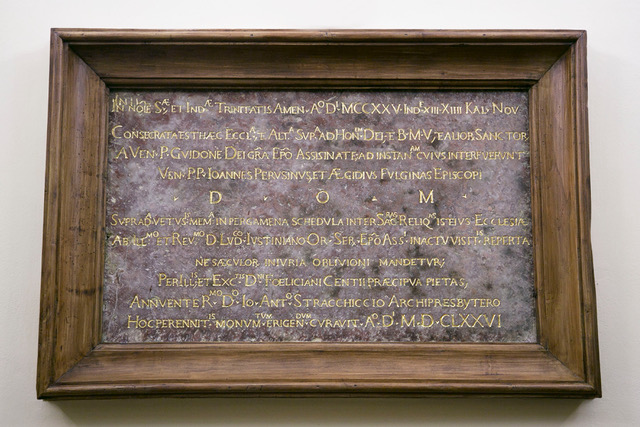 IN NOIE S.Æ ET INDÆ TRINITATIS AMEN. AO DI MCCXXV. INDE XIII XIIII KAL. NOV.
CONSECRATA EST HÆC ECCLA E ALTA SVPA AD HONEM DEI E B.M.V, E ALIOR SANCTOR
A VEN. P. GUIDONE DEI GRA EPO ASSISINATE AD INSTANAM CVIVS INTERFVERVNT
VEN. PP. IOANNES PERVSINVS ET ÆGIDIVS FVLGINAS EPISCOPI
D O M
SVPRADA VETVSIS MEMA IN PERGAMENA SCHEDVLA INTER SACRAS RELIQAS ISTEIVS ECCLESIÆ
AB ILLMO ET REVMO D. LVDCO IVSTINIANO OR. SER. EPO ASS. IN ACTV VISITIS REPERTA
NE SÆCVLOR INIVRIA OBLIVIONI MANDETVR;
PER ILLIS ET EXCTIS DNI FOELICIANI CENTII PRÆCIPVA PIETAS,
ANNVENTE RMO DO IO. ANTO STRACCHICCIO ARCHIPRÆSBYTERO
HOC PERENNITIS MONVMTVM ERIGENDVM CVRAVIT. AO DI M.D.CLXXVI